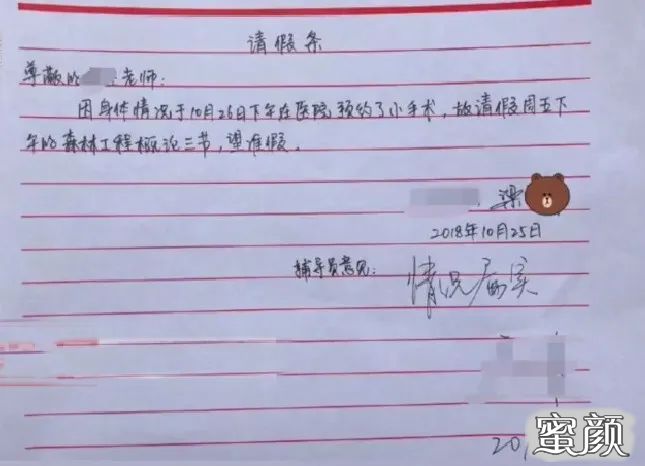 请假条
尊敬的 老师：
因身体情况于10月26日下午在医院预约了小手术，故请假周五下
午的森林工程概论三节，望准假。
梁
2018年10月25日
辅导员意见：
情况属实
20
蜜颜